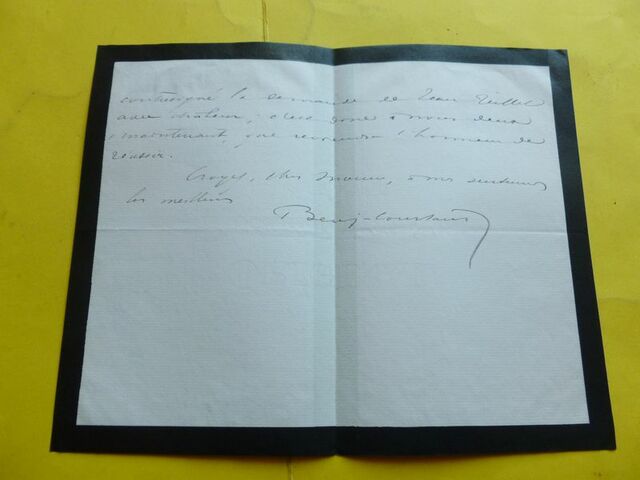 contresigné la demande de Jean Gillet
avec chaleur, c'est donc à nous deux
maintenant, que reviendra l'honneur de
réussir.
Croyez, cher Monsieur, à mes sentiments
les meilleurs
Benj-Constant